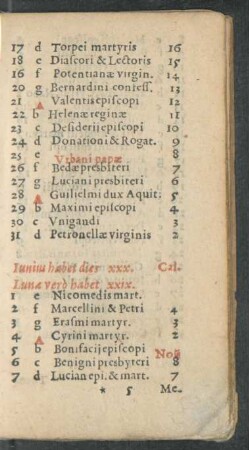 17 d Torpei martyris 16
18 e Diascori & Lectoris 15
16 f Potentianæ virgin. 14
20 g Bernardini confess. 13
21 A Valentis episcopi 12
22 b Helenæ reginæ 11
23 c Desiderij episcopi 10
24 d Donationi & Rogat. 9
25 e Vrbani papæ 8
26 f Bedæ presbiteri 7
27 g Luciani presbiteri 6
28 A Guilielmi dux Aquit: 5
29 b Maximi episcopi 4
30 c Vuigandi 3
31 d Petronellæ virginis 2
Iunius habet dies xxx. Cal.
Lunæ verò habet xxix.
1 e Nicomedis mart.
2 f Marcellini & Petri 4
3 g Erasmi martyr. 3
4 A Cyrini martyr. 2
5 b Bonifacij episcopi Non
6 c Benigni presbyteri 8
7 d Lucian epi. & mart. 7
* 5 Me-